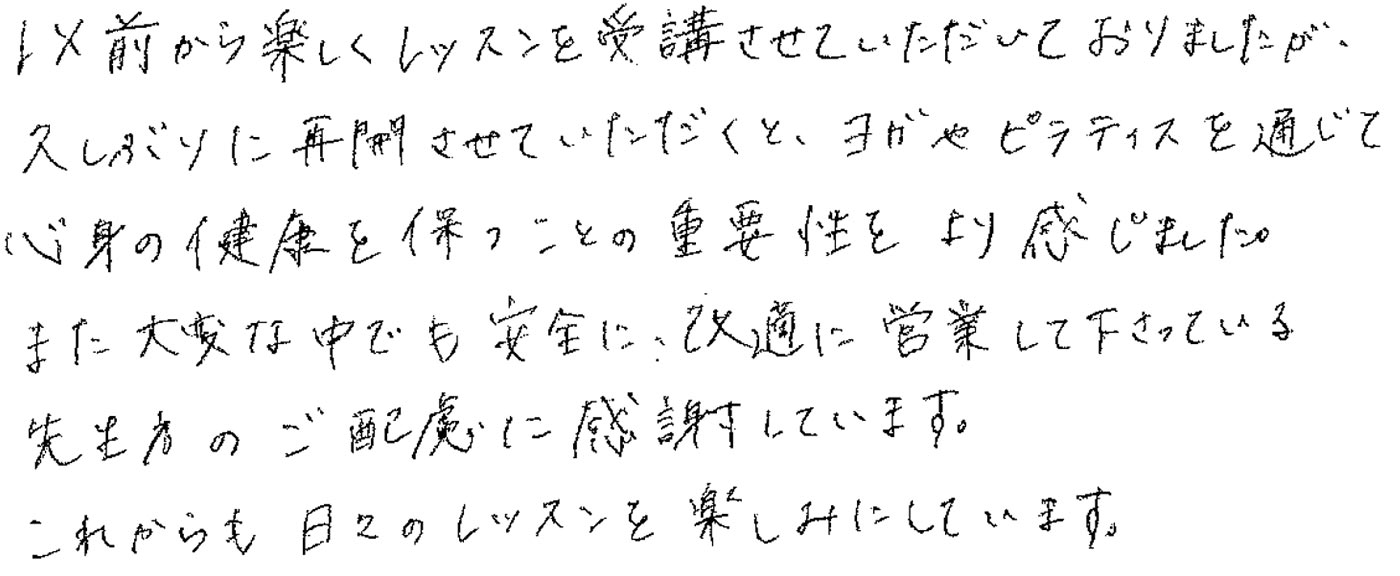 以前から楽しくレッスンを受講させていただいておりましたが、
久しぶりに再開させていただくと、ヨガやピラティスを通じて
心身の健康を保つことの重要性をより感じました。
また大変な中でも安全に、改適に営業して下さっている
先生方のご配慮に感謝しています。
これからも日々のレッスンを楽しみにしています。